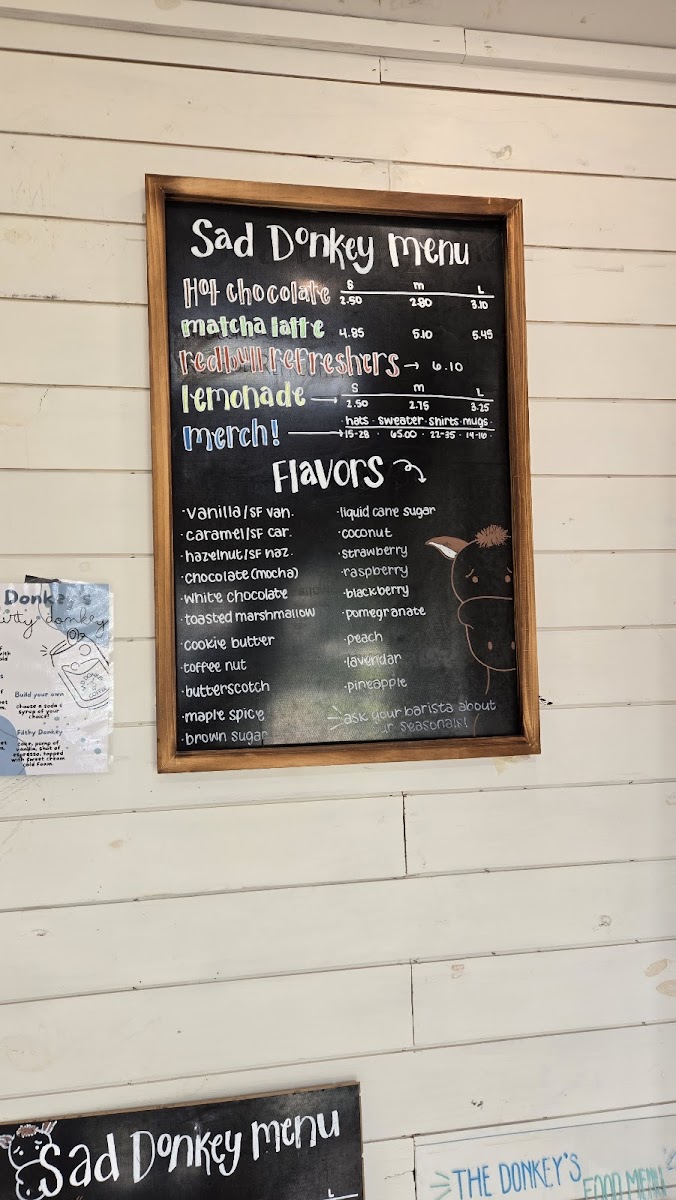 Sad Donkey Menu
Hot chocolate S M L
2.50 2.80 3.10
matcha latte 4.85 5.10 5.45
redbull refreshers → 6.10
lemonade → S M L
2.50 2.75 3.25
merch! → hats · sweater · shirts · mugs ·
15-28 · 65.00 · 22-35 · 14-16 ·
Flavors
·vanilla/SF van.
·caramel/SF car.
·hazelnut/SF haz.
·chocolate (mocha)
·white chocolate
·toasted marshmallow
·cookie butter
·toffee nut
·butterscotch
·maple spice
·brown sugar
·liquid cane sugar
·coconut
·strawberry
·raspberry
·blackberry
·pomegranate
·peach
·lavendar
·pineapple
ask your barista about
seasonals!
donkey
Build your own
choose a soda &
syrup of your
choice!
Filthy Donkey
coke, pump of
vanilla, shot of
espresso, topped
with sweet cream
cold foam.
Sad Donkey Menu
L
THE DONKEY'S FOOD MENU